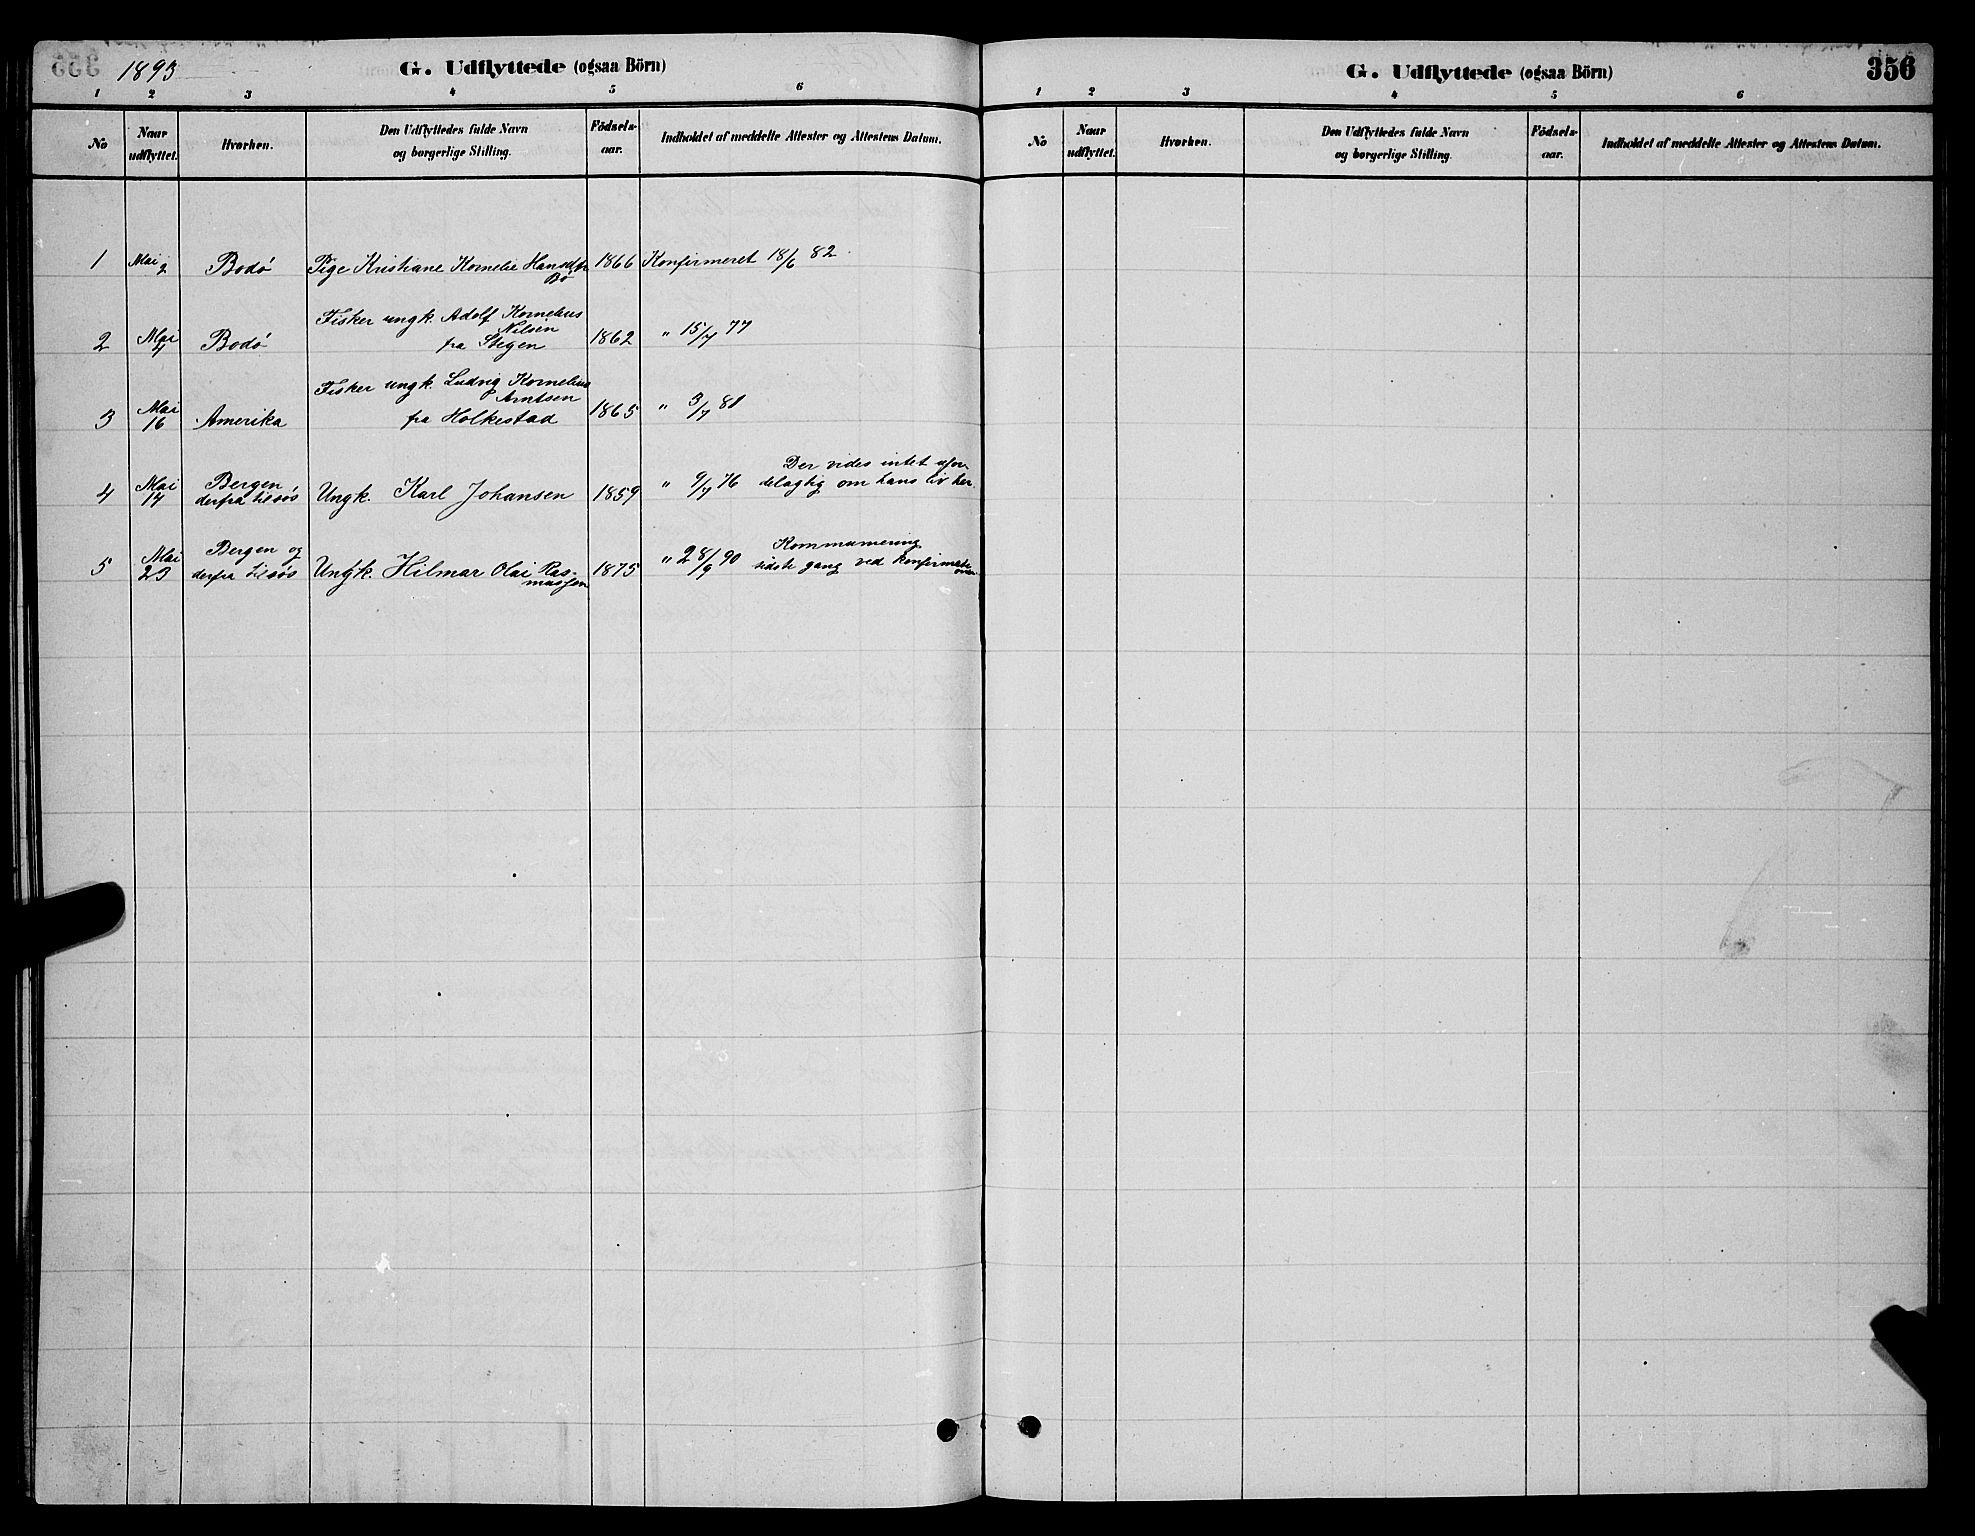 1893
G. Udflyttede (ogsaa Börn)
1 2 3 4 5 6
No
Naar udflyttet.
Hvorhen.
Den Udflyttedes fulde Navn
og borgerlige Stilling.
Födsels-
aar.
Indholdet af meddelte Attester og Attestens Datum.
1 Mai 2 Bodø Pige Kristiane Kornelie Hansdtr 1866 Konfirmeret 18/6 82
Bø
Fisker ungk. Adolf Kornelius
Nilsen
2 Mai 4 Bodø fra Stegen 1862 " 15/7 77
Fisker ungk. Ludvig Kornelius
Arntsen
3 Mai 16 Amerika fra Holkestad 1865 " 3/7 81
Der vides intet ufor-
4 Mai 14 Bergen, derfra tilsøs Ungk. Karl Johansen 1859 " 9/7 76 delagtig om hans liv her.
Kommunering
5 Mai 23 Bergen og derfra tilsøs Ungk. Hilmar Olai Ras- 1875 " 28/9 90 sidste gang ved konfirmati-
mussen onen
G. Udflyttede (ogsaa Börn)
356
1 2 3 4 5 6
No
Naar udflyttet.
Hvorhen.
Den Udflyttedes fulde Navn
og borgerlige Stilling.
Födsels-
aar.
Indholdet af meddelte Attester og Attestens Datum.